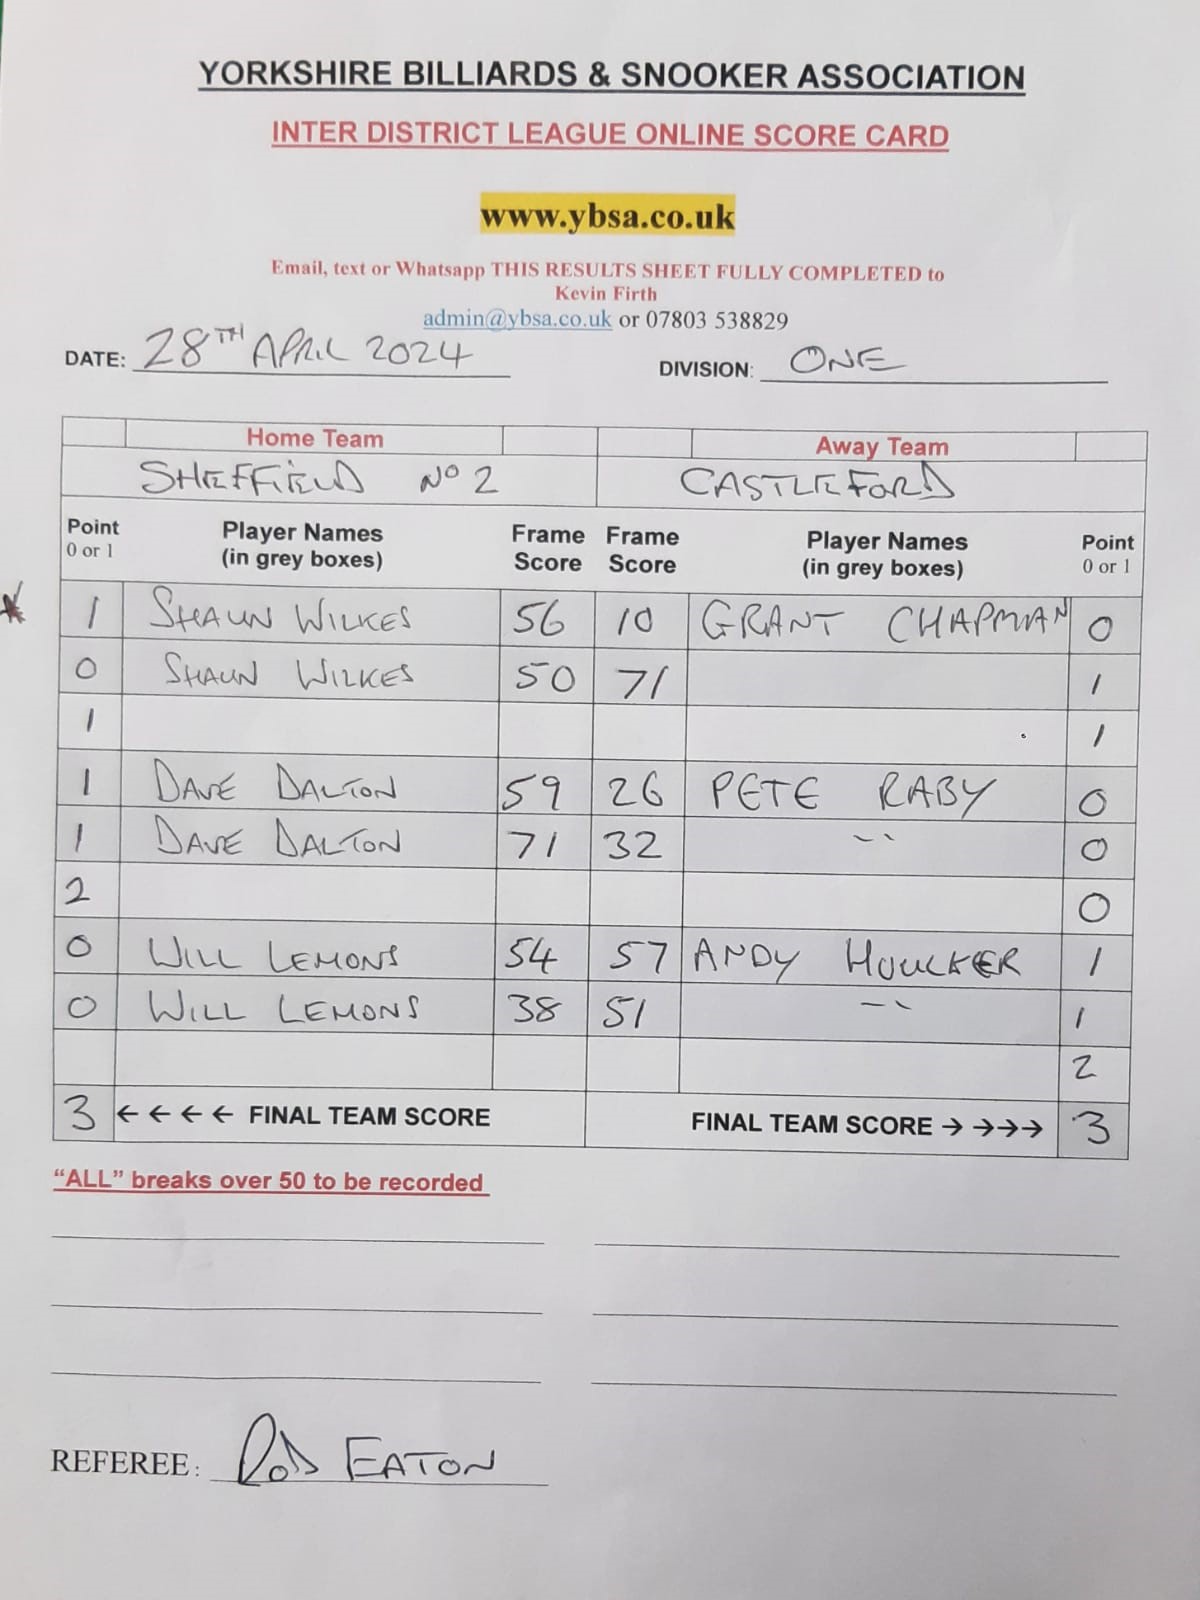 YORKSHIRE BILLIARDS & SNOOKER ASSOCIATION
INTER DISTRICT LEAGUE ONLINE SCORE CARD
www.ybsa.co.uk
Email, text or Whatsapp THIS RESULTS SHEET FULLY COMPLETED to
Kevin Firth
admin@ybsa.co.uk or 07803 538829
DATE: 28TH APRIL 2024 DIVISION: ONE
Home Team Away Team
SHEFFIELD No 2 CASTLEFORD
Point 0 or 1 Player Names (in grey boxes) Frame Score Frame Score Player Names (in grey boxes) Point 0 or 1
1 SHAUN WILKES 56 10 GRANT CHAPMAN 0
0 SHAUN WILKES 50 71 1
1 1
1 DAVE DALTON 59 26 PETE RABY 0
1 DAVE DALTON 71 32 0
2 0
0 WILL LEMONS 54 57 ANDY HOULKER 1
0 WILL LEMONS 38 51 1
2
3 ←←←← FINAL TEAM SCORE FINAL TEAM SCORE → →→→ 3
“ALL” breaks over 50 to be recorded
REFEREE: ROD EATON